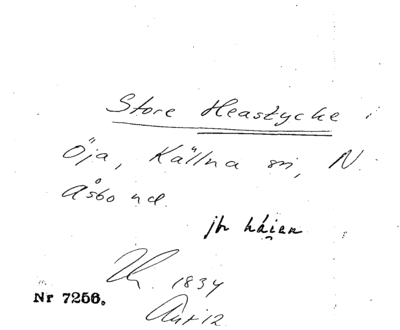 Store Heastycke i
Öja, Källna sn, N.
Åsbo hd.
jfr häien
1834
Akt 12
Nr 7256.